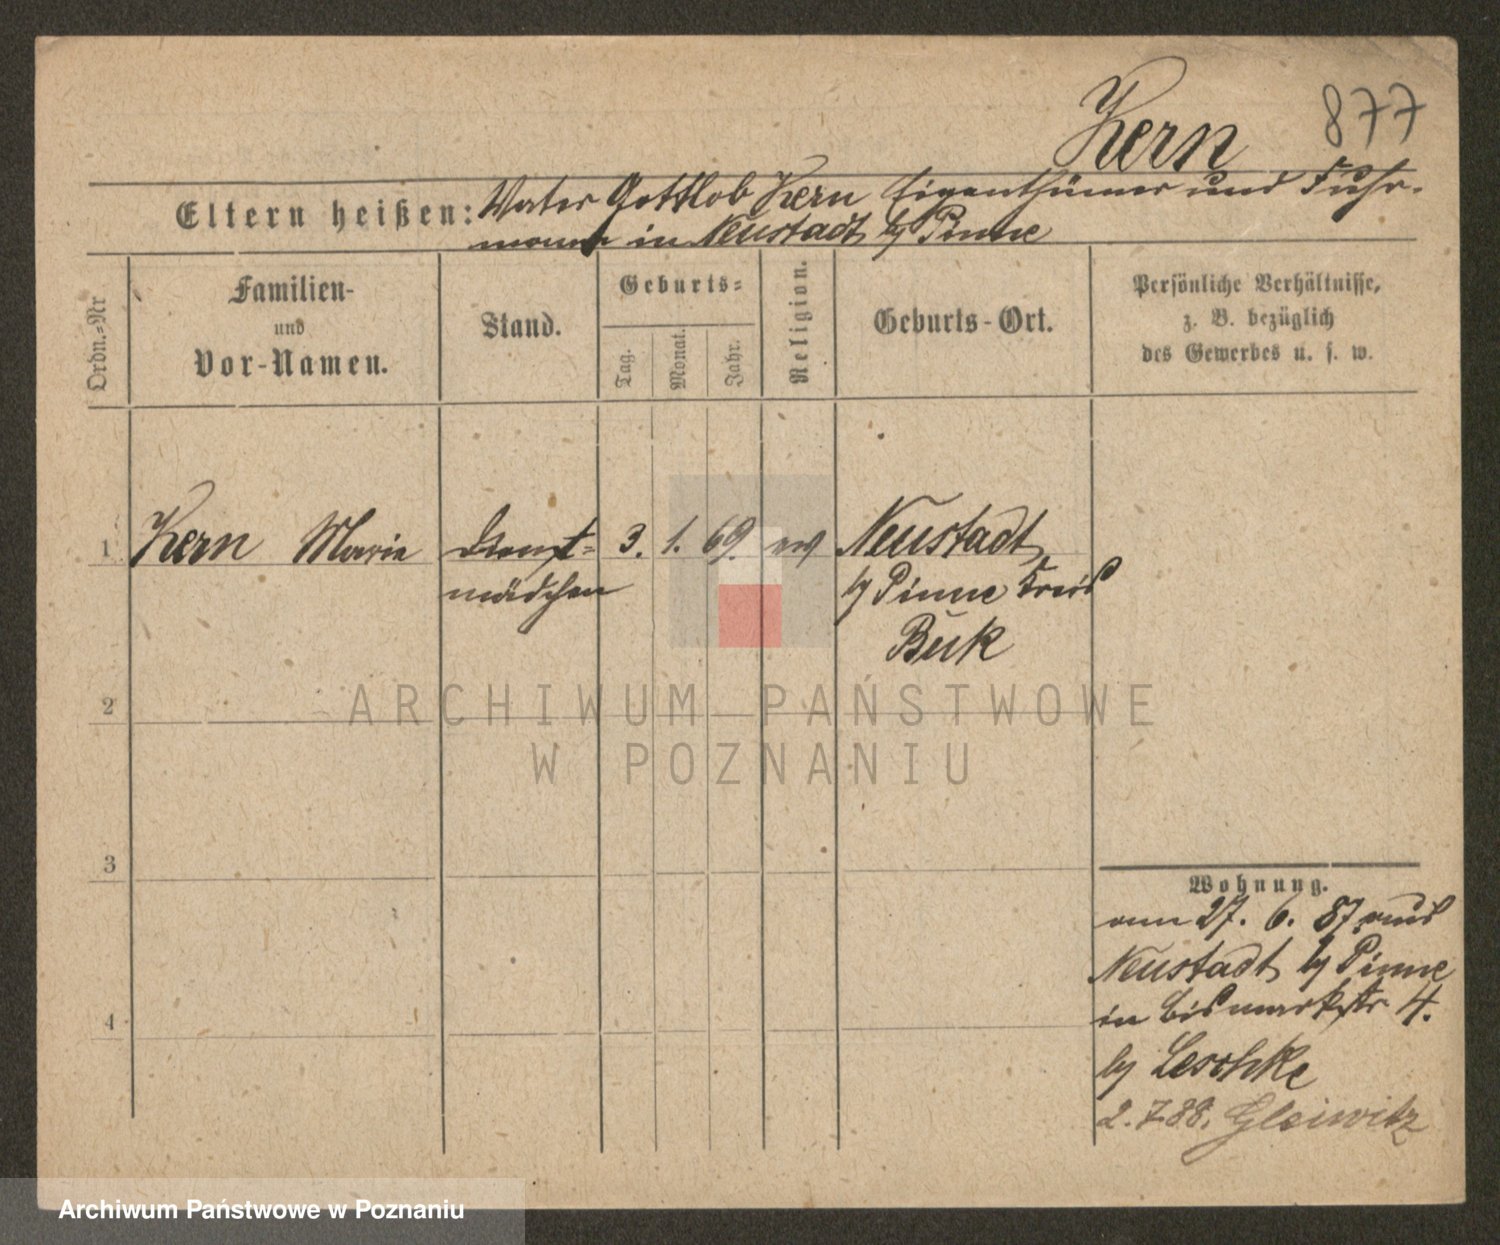 Kern 877
Eltern heißen: Vater Gottlob Kern Eigenthümer und Fuhr-
mann in Neustadt b/ Pinne
Ordn.=Nr
Familien-
und
Vor-Namen.
Stand.
Geburts=
Tag.
Monat.
Jahr.
Religion.
Geburts-Ort.
Persönliche Verhältnisse,
z. B. bezüglich
des Gewerbes u. s. w.
1 Kern Marie Dienst= 3. 1. 69. ev Neustadt
mädchen b/ Pinne Kreis
Buk
2
3
4
ARCHIWUM PAŃSTWOWE
W POZNANIU
Wohnung.
am 27. 6. 87 aus
Neustadt b/ Pinne
in Bismarkstr 4.
b/ Leschke
2.7.88. Gleiwitz
Archiwum Państwowe w Poznaniu